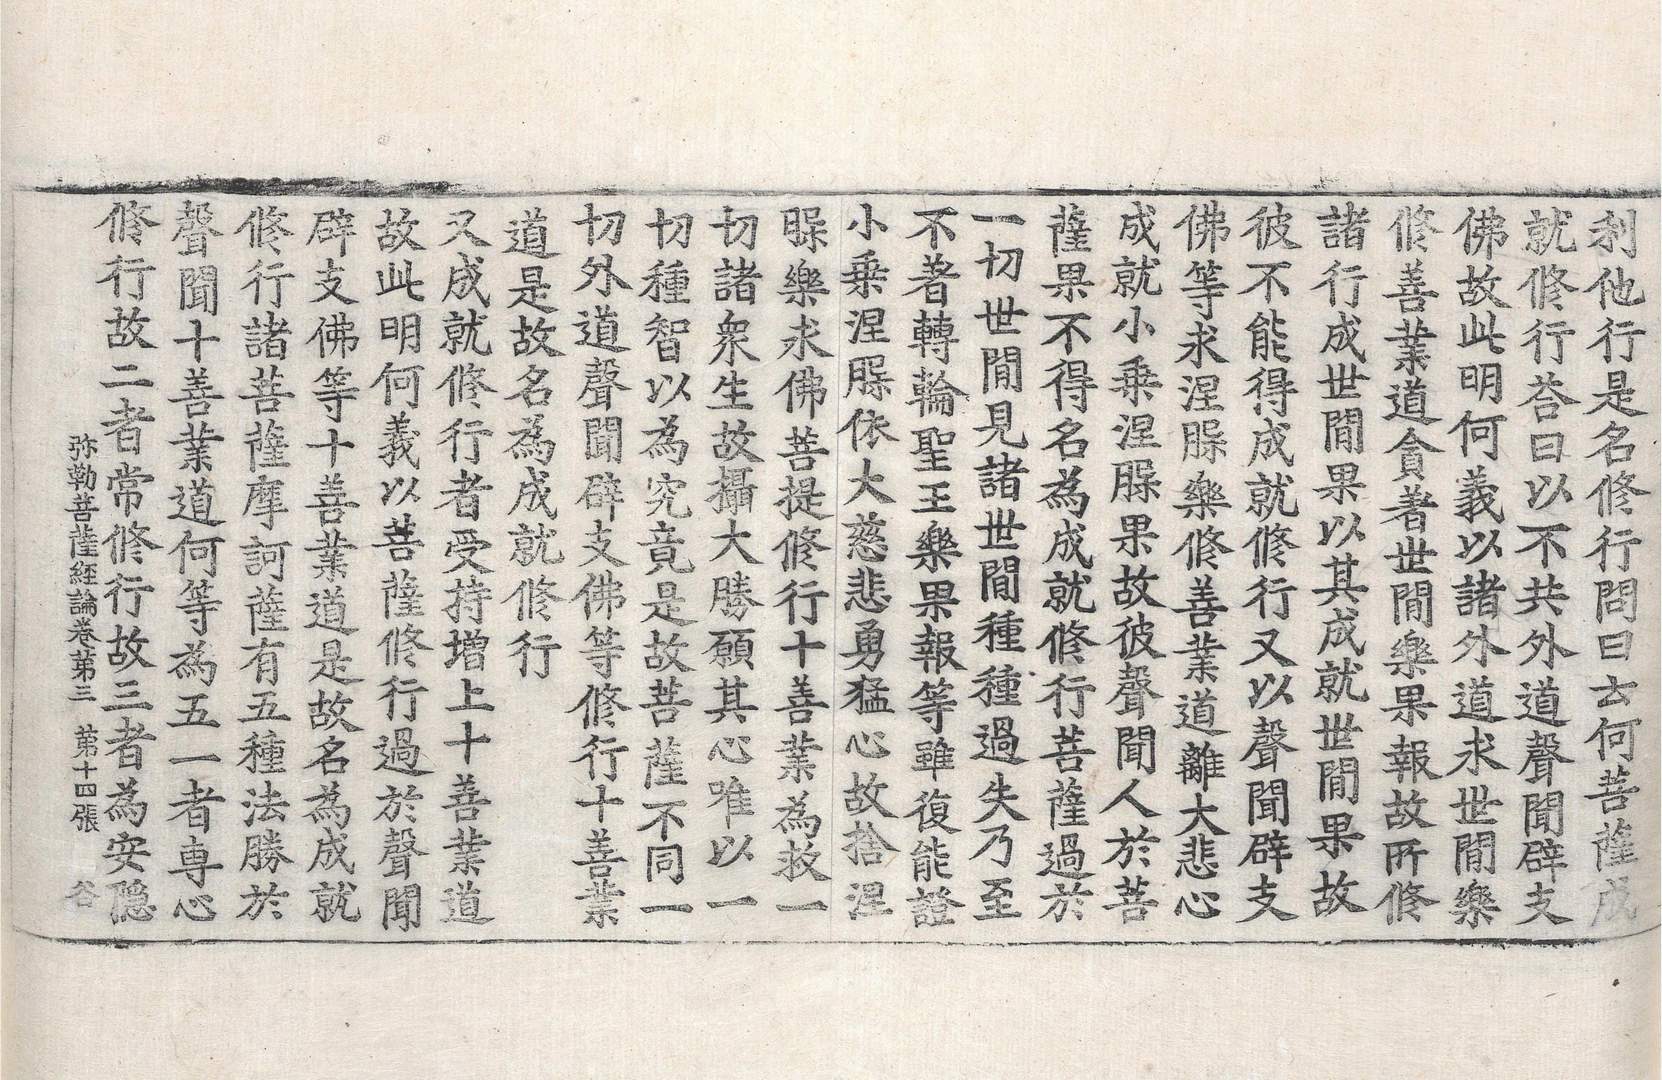 利他行是名修行問曰云何菩薩成
就修行荅曰以不共外道聲聞辟支
佛故此明何義以諸外道求世間樂
修善業道貪著世間樂果報故所修
諸行成世間果以其成就世間果故
彼不能得成就修行又以聲聞辟支
佛等求涅槃樂修善業道離大悲心
成就小乗涅槃果故彼聲聞人於菩
薩果不得名為成就修行菩薩過於
一切世間見諸世間種種過失乃至
不著轉輪聖王樂果報等雖復能證
小乗涅槃依大慈悲勇猛心故捨涅
槃樂求佛菩提修行十善業為救一
切諸衆生故攝大勝願其心唯以一
切種智以為究竟是故菩薩不同一
切外道聲聞辟支佛等修行十善業
道是故名為成就修行
又成就修行者受持增上十善業道
故此明何義以菩薩修行過於聲聞
辟支佛等十善業道是故名為成就
修行諸菩薩摩訶薩有五種法勝於
聲聞十善業道何等為五一者專心
修行故二者常修行故三者為安隱
弥勒菩薩経論卷第三 第十四張 谷